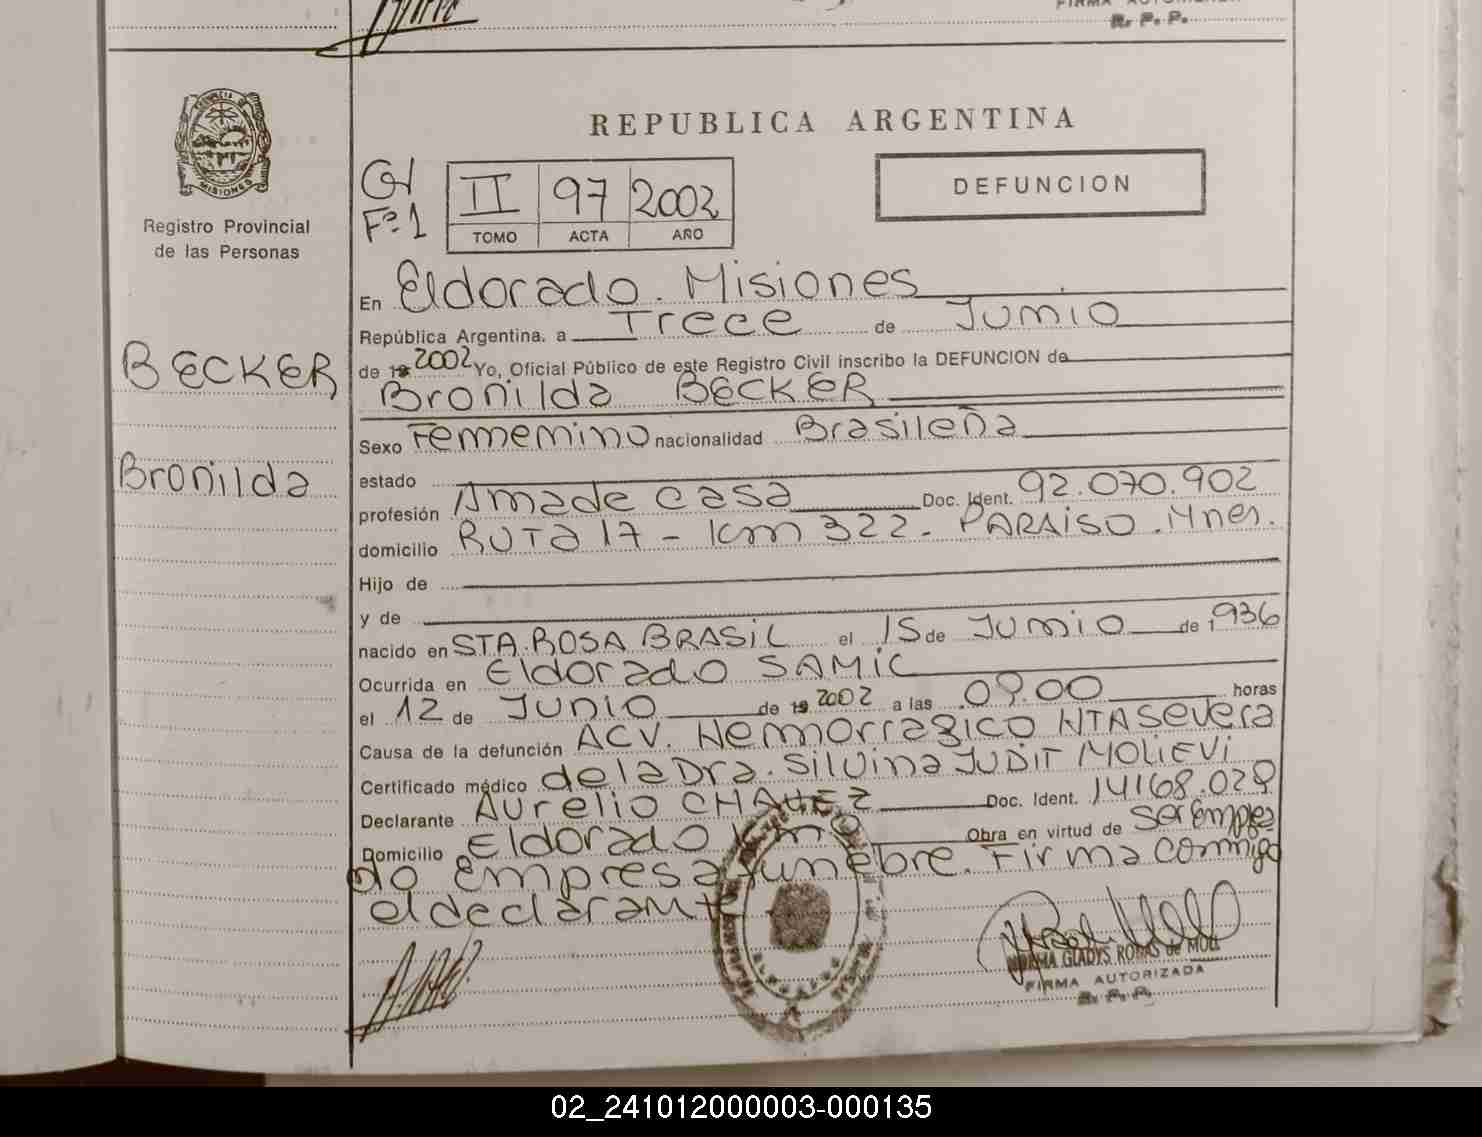 FIRMA AUTORIZADA
R. P. P.
PROVINCIA DE
MISIONES
Registro Provincial
de las Personas
BECKER
Bronilda
REPUBLICA ARGENTINA
Fº 1
II 97 2002
TOMO ACTA AÑO
DEFUNCION
En Eldorado. Misiones
República Argentina, a Trece de Junio
de 19 2002 Yo, Oficial Público de este Registro Civil inscribo la DEFUNCION de
Bronilda BECKER
Sexo Femmenino nacionalidad Brasileña
estado
profesión Ama de casa Doc. Ident. 92.070.902
domicilio RUTA 17 - Km 322 - PARAISO. Mnes.
Hijo de
y de
nacido en STA. ROSA BRASIL el 15 de Junio de 1936
Ocurrida en Eldorado SAMIC
el 12 de Junio de 19 2002 a las 09.00 horas
Causa de la defunción ACV. Hemorragico HTA Severa
Certificado médico de la Dra. Silvina JUDIT MOLIEVI
Declarante Aurelio CHAVEZ Doc. Ident. 14168.028
Domicilio Eldorado Km 9 Obra en virtud de ser Emplea
do Empresa funebre. Firma conmigo
el declarante
NORMA GLADYS ROJAS de MOLL
FIRMA AUTORIZADA
R. P. P.
02_241012000003-000135